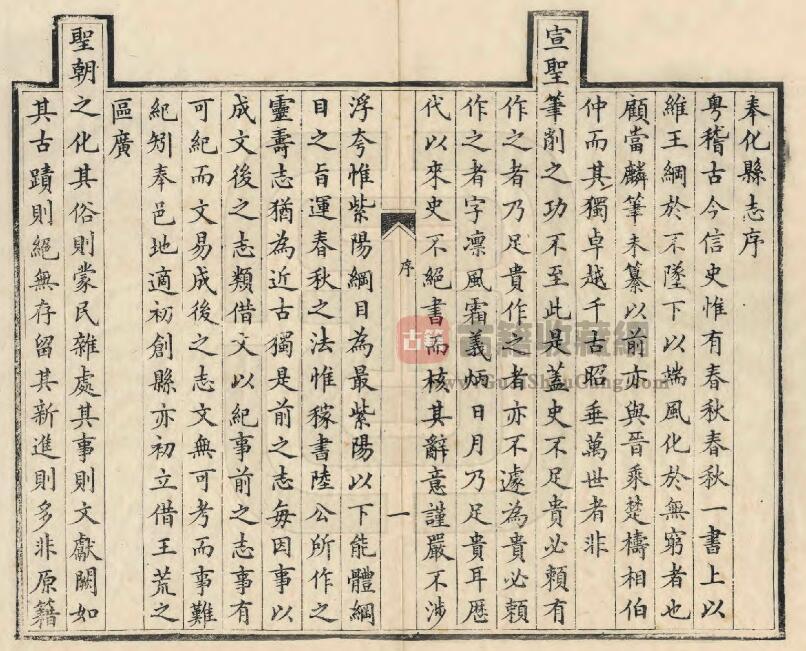 奉化縣志序
粤稽古今信史惟有春秋春秋一書上以
維王綱於不墜下以端風化於無窮者也
顧當麟筆未纂以前亦與晉乘楚檮相伯
仲而其獨卓越千古昭垂萬世者非
宣聖筆削之功不至此是蓋史不足貴必頼有
作之者乃足貴作之者亦不遽為貴必頼
作之者字凛風霜義炳日月乃足貴耳歴
代以來史不絕書而核其辭意謹嚴不涉
序
一
浮夸惟紫陽綱目為最紫陽以下能體綱
目之旨運春秋之法惟稼書陸公所作之
靈壽志猶為近古獨是前之志每因事以
成文後之志類借文以紀事前之志事有
可紀而文易成後之志文無可考而事難
紀矧奉邑地適初創縣亦初立借王荒之
區廣
聖朝之化其俗則蒙民雜處其事則文獻闕如
其古蹟則絕無存留其新進則多非原籍
古籍
古籍收藏網
www.GuJiShouCang.com